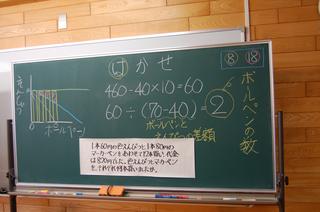 はかせ
⑧ ⑱
460-40×10=60
60÷(70-40)=2
ボールペンと
えんぴつの差額
ボールペンの数
えんぴつ
ボールペン
1本60円の色えんぴつと1本80円の
マーカーペンをあわせて12本買い、代金
は820円でした。色えんぴつとマーカーペン
を、それぞれ何本買いましたか。